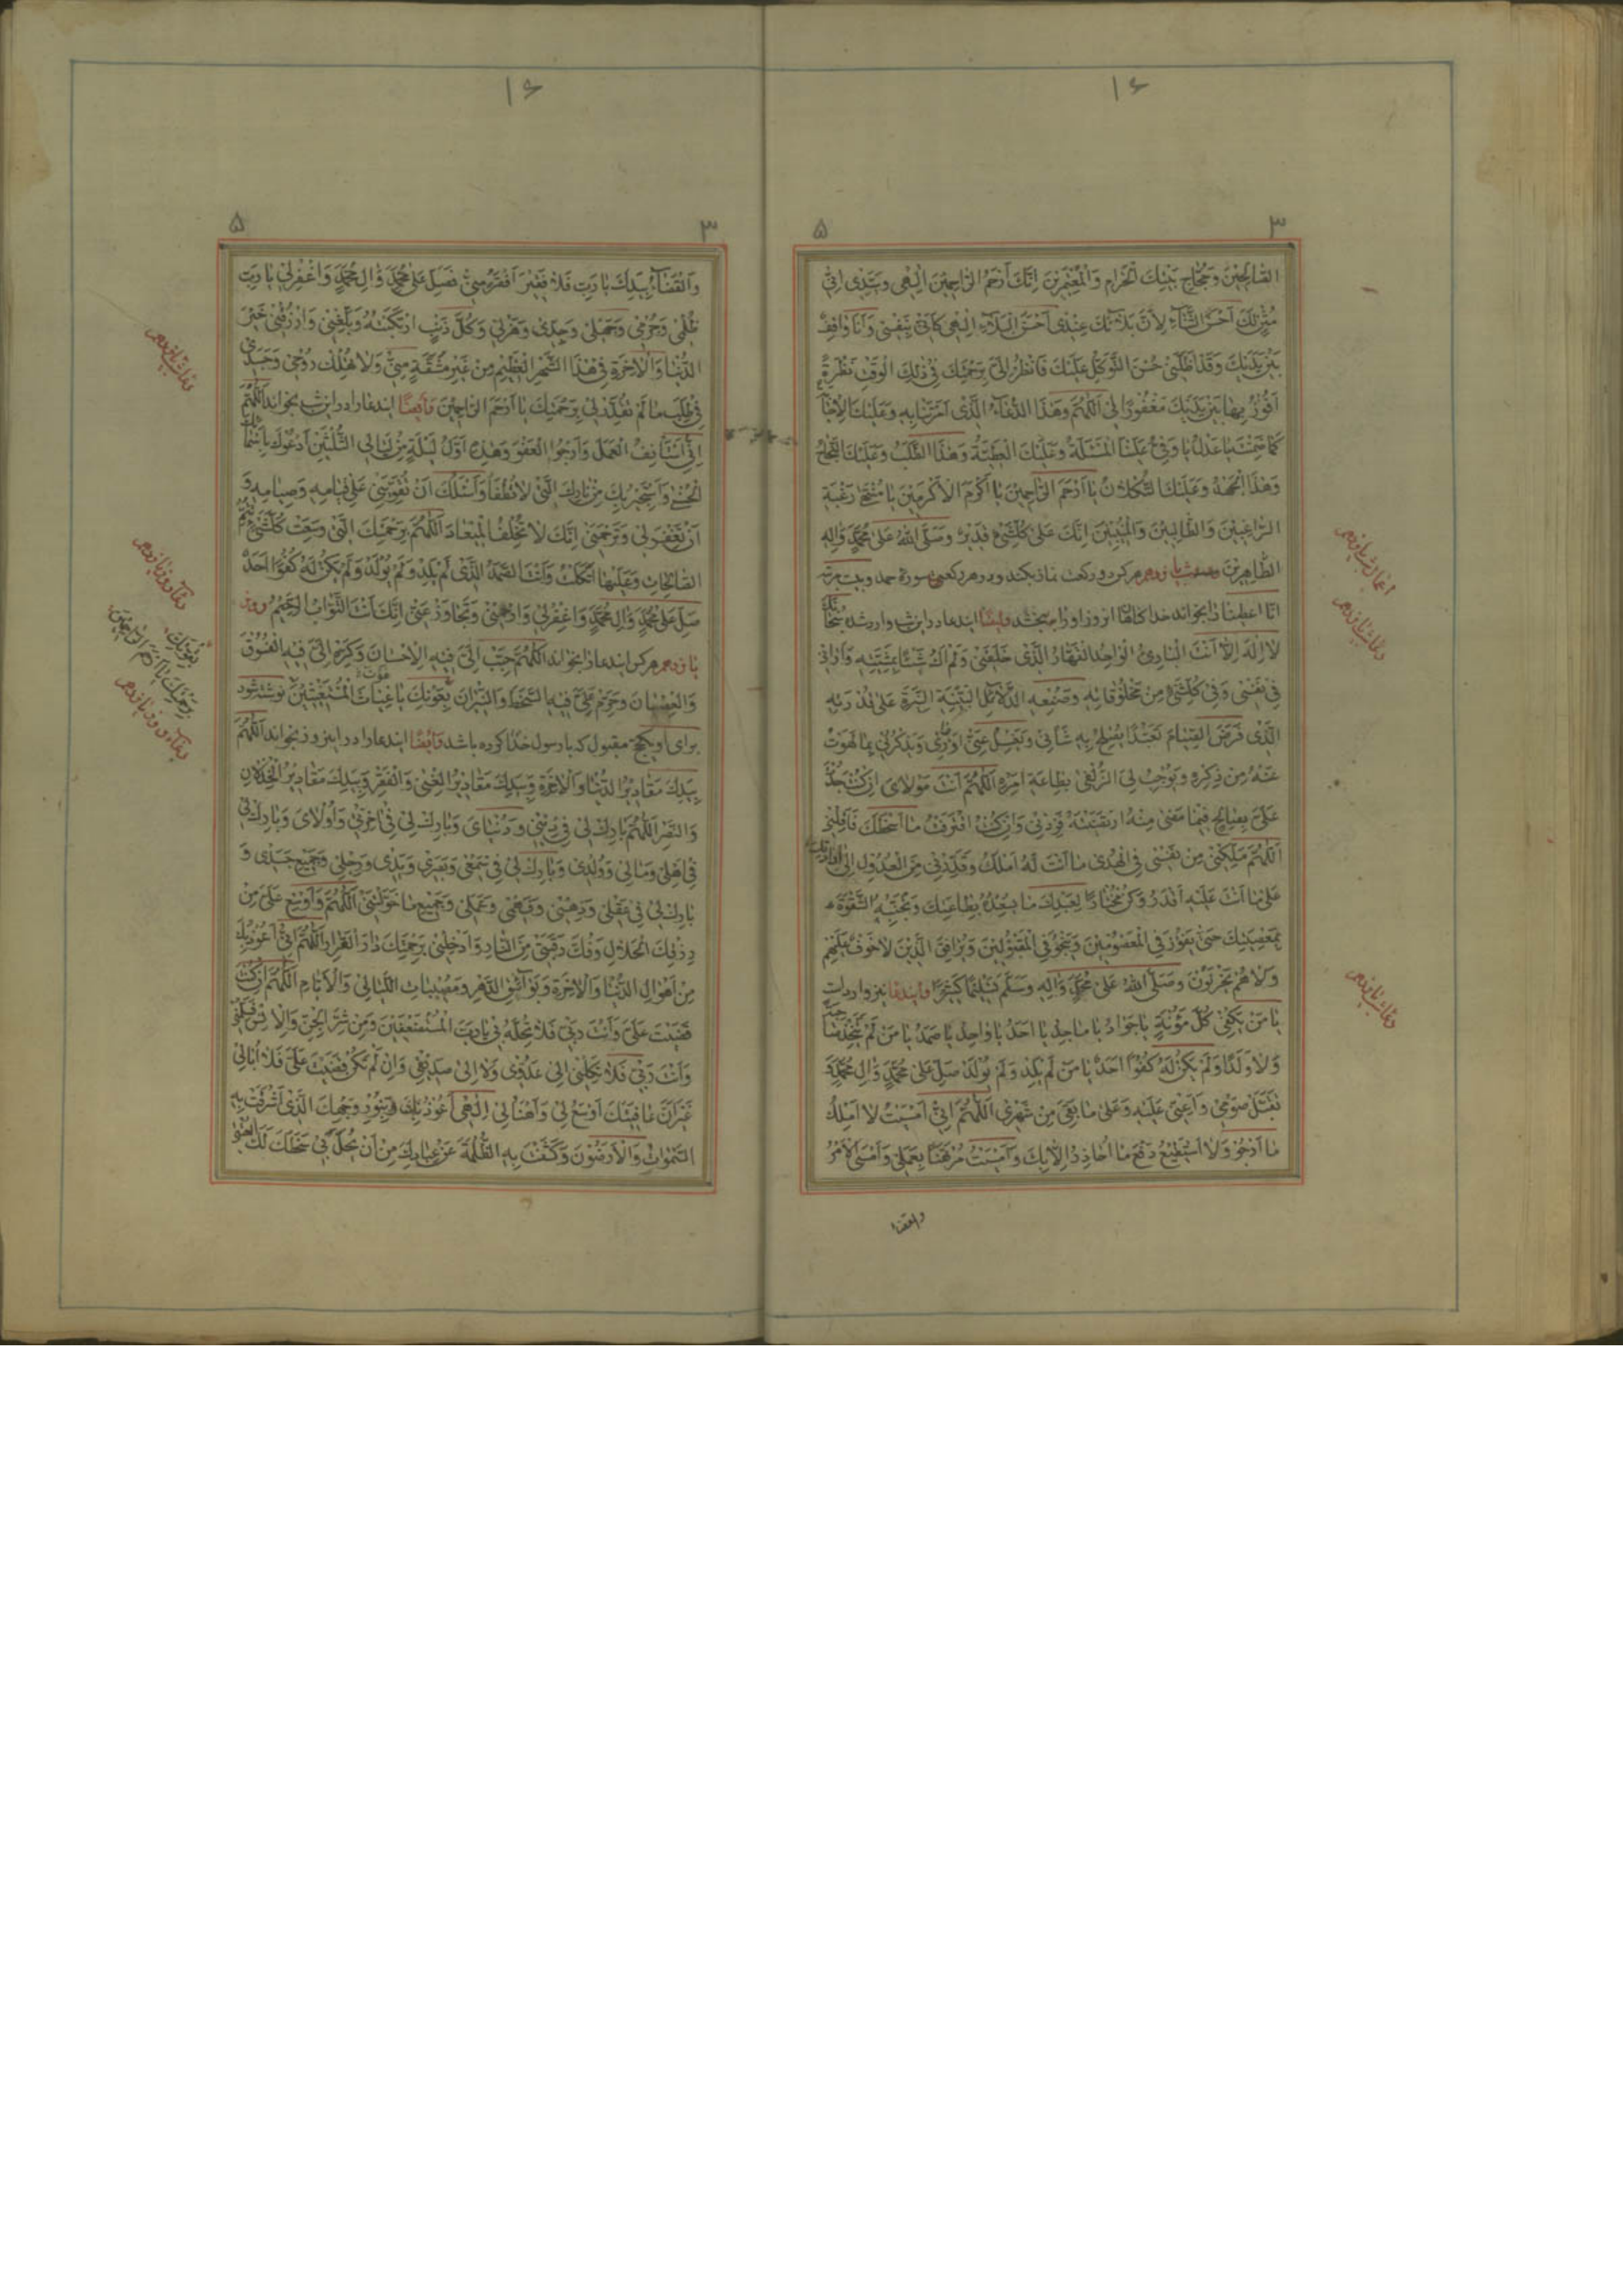 ۱۶
۳ ۵
الصالحين وحجاج بيتك الحرام والمعتمرين انك ارحم الراحمين الهى وسيدى انى
مثن لك احسن الثناء لان بلائك عندى احسن البلاء الهى كانى بنفسى وانا واقف
بين يديك وقد اظلنى حسن التوكل عليك فانظر الى برحمتك فى ذلك الوقف نظرة
افوز بها بين يديك مغفورا لى اللهم وهذا الدعاء الذى امرتنا به وعليك الاجابة
كما ضمنت يا عدل يا وفى علينا المسئلة وعليك العطية وهذا الطلب وعليك النجاح
وهذا الجهد وعليك التكلان يا ارحم الراحمين يا اكرم الاكرمين يا منتهى رغبة
الراغبين والطالبين والمنيبين انك على كلشىء قدير وصلى الله على محمد واله
الطاهرين شب پانزدهم هر كه دو ركعت نماز بكند ودر هر ركعتى سوره حمد وبيست مرتبه
انا اعطينا را بخواند خدا گناهان او را مى بخشد وايضا ايندعا در اين شب وارد شده سبحانك
لا اله الا انت البادئ الواحد القهار الذى خلقنى ولم اك شيئا بمشيته وارانى
فى نفسى وفى كلشىء من مخلوقاته وصنعه الدلائل البينة النيرة على قدرته
الذى فرض الصيام تعبدا يصلح به شانى ويغسل عنى اوزارى ويذكرنى بما لهوت
عنه من ذكره ويوجب لى الزلفى بطاعة امره اللهم انت مولاى ان كنت جدت
على بصالح فيما مضى منه ارتضيته فزدنى وان كنت اقترفت ما اسخطك فاقلنى
اللهم ملكنى من نفسى فى الهدى ما انت له املك وقدرنى من العدول الى ارادتك
على ما انت عليه اقدر وكن مختارا لعبدك ما يسعده بطاعتك وتجنبه الشقوة
بمعصيتك حتى يفوز فى المعصومين وينجو فى المقبولين ويرافق الذين لا خوف عليهم
ولا هم يحزنون وصلى الله على محمد واله وسلم تسليما كثيرا وايندعا نيز وارد است
يا من يكفى كل مؤنة يا جواد يا ماجد يا احد يا واحد يا صمد يا من لم يتخذ صاحبة
ولا ولدا ولم يكن له كفوا احد يا من لم يلد ولم يولد صل على محمد وال محمد و
تقبل صومى واعنى عليه وعلى ما بقى من شهرى اللهم انى امسيت لا املك
ما ارجو ولا استطيع دفع ما احاذر الا بك وامسيت مرتهنا بعملى وامسى الامر
والقضاء
اعمال شب پانزدهم
دعاى شب پانزدهم
دعاى شب پانزدهم
۱۶
۳ ۵
والقضاء بيدك يا رب فلا فقير افقر منى فصل على محمد وال محمد واغفر لى يا رب
ظلمى وجرمى وجهلى وجدى وهزلى وكل ذنب ارتكبته وبلغنى وارزقنى خير
الدنيا والاخرة فى هذا الشهر العظيم من غير مشقة منى ولا تهلك روحى وجسدى
فى طلب ما لم تقدر لى برحمتك يا ارحم الراحمين وايضا ايندعا را در اين شب بخواند اللهم
انى استانف العمل وارجو العفو وهذه اول ليلة من ليالى الثلثين ادعوك باسمائك
الحسنى واستجير بك من نارك التى لا تطفأ واسئلك ان تقوينى على قيامه وصيامه و
ان تغفر لى وترحمنى انك لا تخلف الميعاد اللهم برحمتك التى وسعت كلشىء تتم
الصالحات وعليها اتكلت وانت الصمد الذى لم يلد ولم يولد ولم يكن له كفوا احد
صل على محمد وال محمد واغفر لى وارحمنى وتجاوز عنى انك انت التواب الرحيم روز
پانزدهم هر كس ايندعا را بخواند اللهم حبب الى فيه الاحسان وكره الى فيه الفسوق
والعصيان وحرم على فيه السخط والنيران بعونك يا غياث المستغيثين نوشته شود
براى او حج مقبول كه با رسول خدا كرده باشد وايضا ايندعا را در اين روز بخواند اللهم
بيدك مقادير الدنيا والاخرة وبيدك مقادير الغنى والفقر وبيدك مقادير الخذلان
والنصر اللهم بارك لى فى دينى ودنياى وبارك لى فى اخرتى واولاى وبارك لى
فى اهلى ومالى وولدى وبارك لى فى سمعى وبصرى ويدى ورجلى وجميع جسدى و
بارك لى فى عقلى وذهنى وفهمى وعملى وجميع ما خولتنى اللهم واوسع على من
رزقك الحلال وفك رقبتى من النار وادخلنى برحمتك دار القرار اللهم انى اعوذ بك
من اهوال الدنيا والاخرة وبوائق الدهر ومصيبات الليالى والايام اللهم ان كنت
غضبت على وانت ربى فلا تحله بى يا رب المستضعفين ومن شر الجن والانس فسلمنى
وانت ربى فلا تكلنى الى عدوى ولا الى صديقى وان لم تكن غضبت على فلا ابالى
غير ان عافيتك اوسع لى واهنا لى الهى اعوذ بك وبنور وجهك الذى اشرقت به
السموات والارضون وكشفت به الظلمة عن عبادك من ان يحل بى سخطك لك العتبى
دعاى شب پانزدهم
دعاء روز پانزدهم
بقوتك
برحمتك يا اكرم الاكرمين
دعاء روز پانزدهم